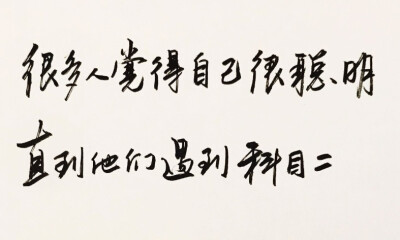 很多人觉得自己很聪明
直到他们遇到科目二